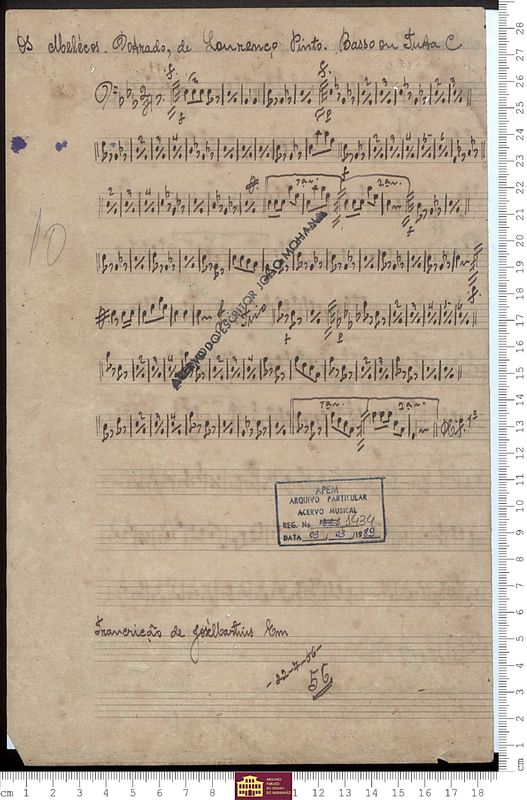 Os Melécos. Dobrado, de Lourenço Pinto. Basso ou Tuba C
1ª
2ª
10
ACERVO DO ESCRITOR JOÃO MOHANA
1ª
2ª
APEM
ARQUIVO PARTICULAR
ACERVO MUSICAL
REG. No 1434
DATA 03 / 03 / 1989
Trancrição de José Martins Em
-22-7-56-
56
ARQUIVO
PÚBLICO
DO ESTADO
DO MARANHÃO